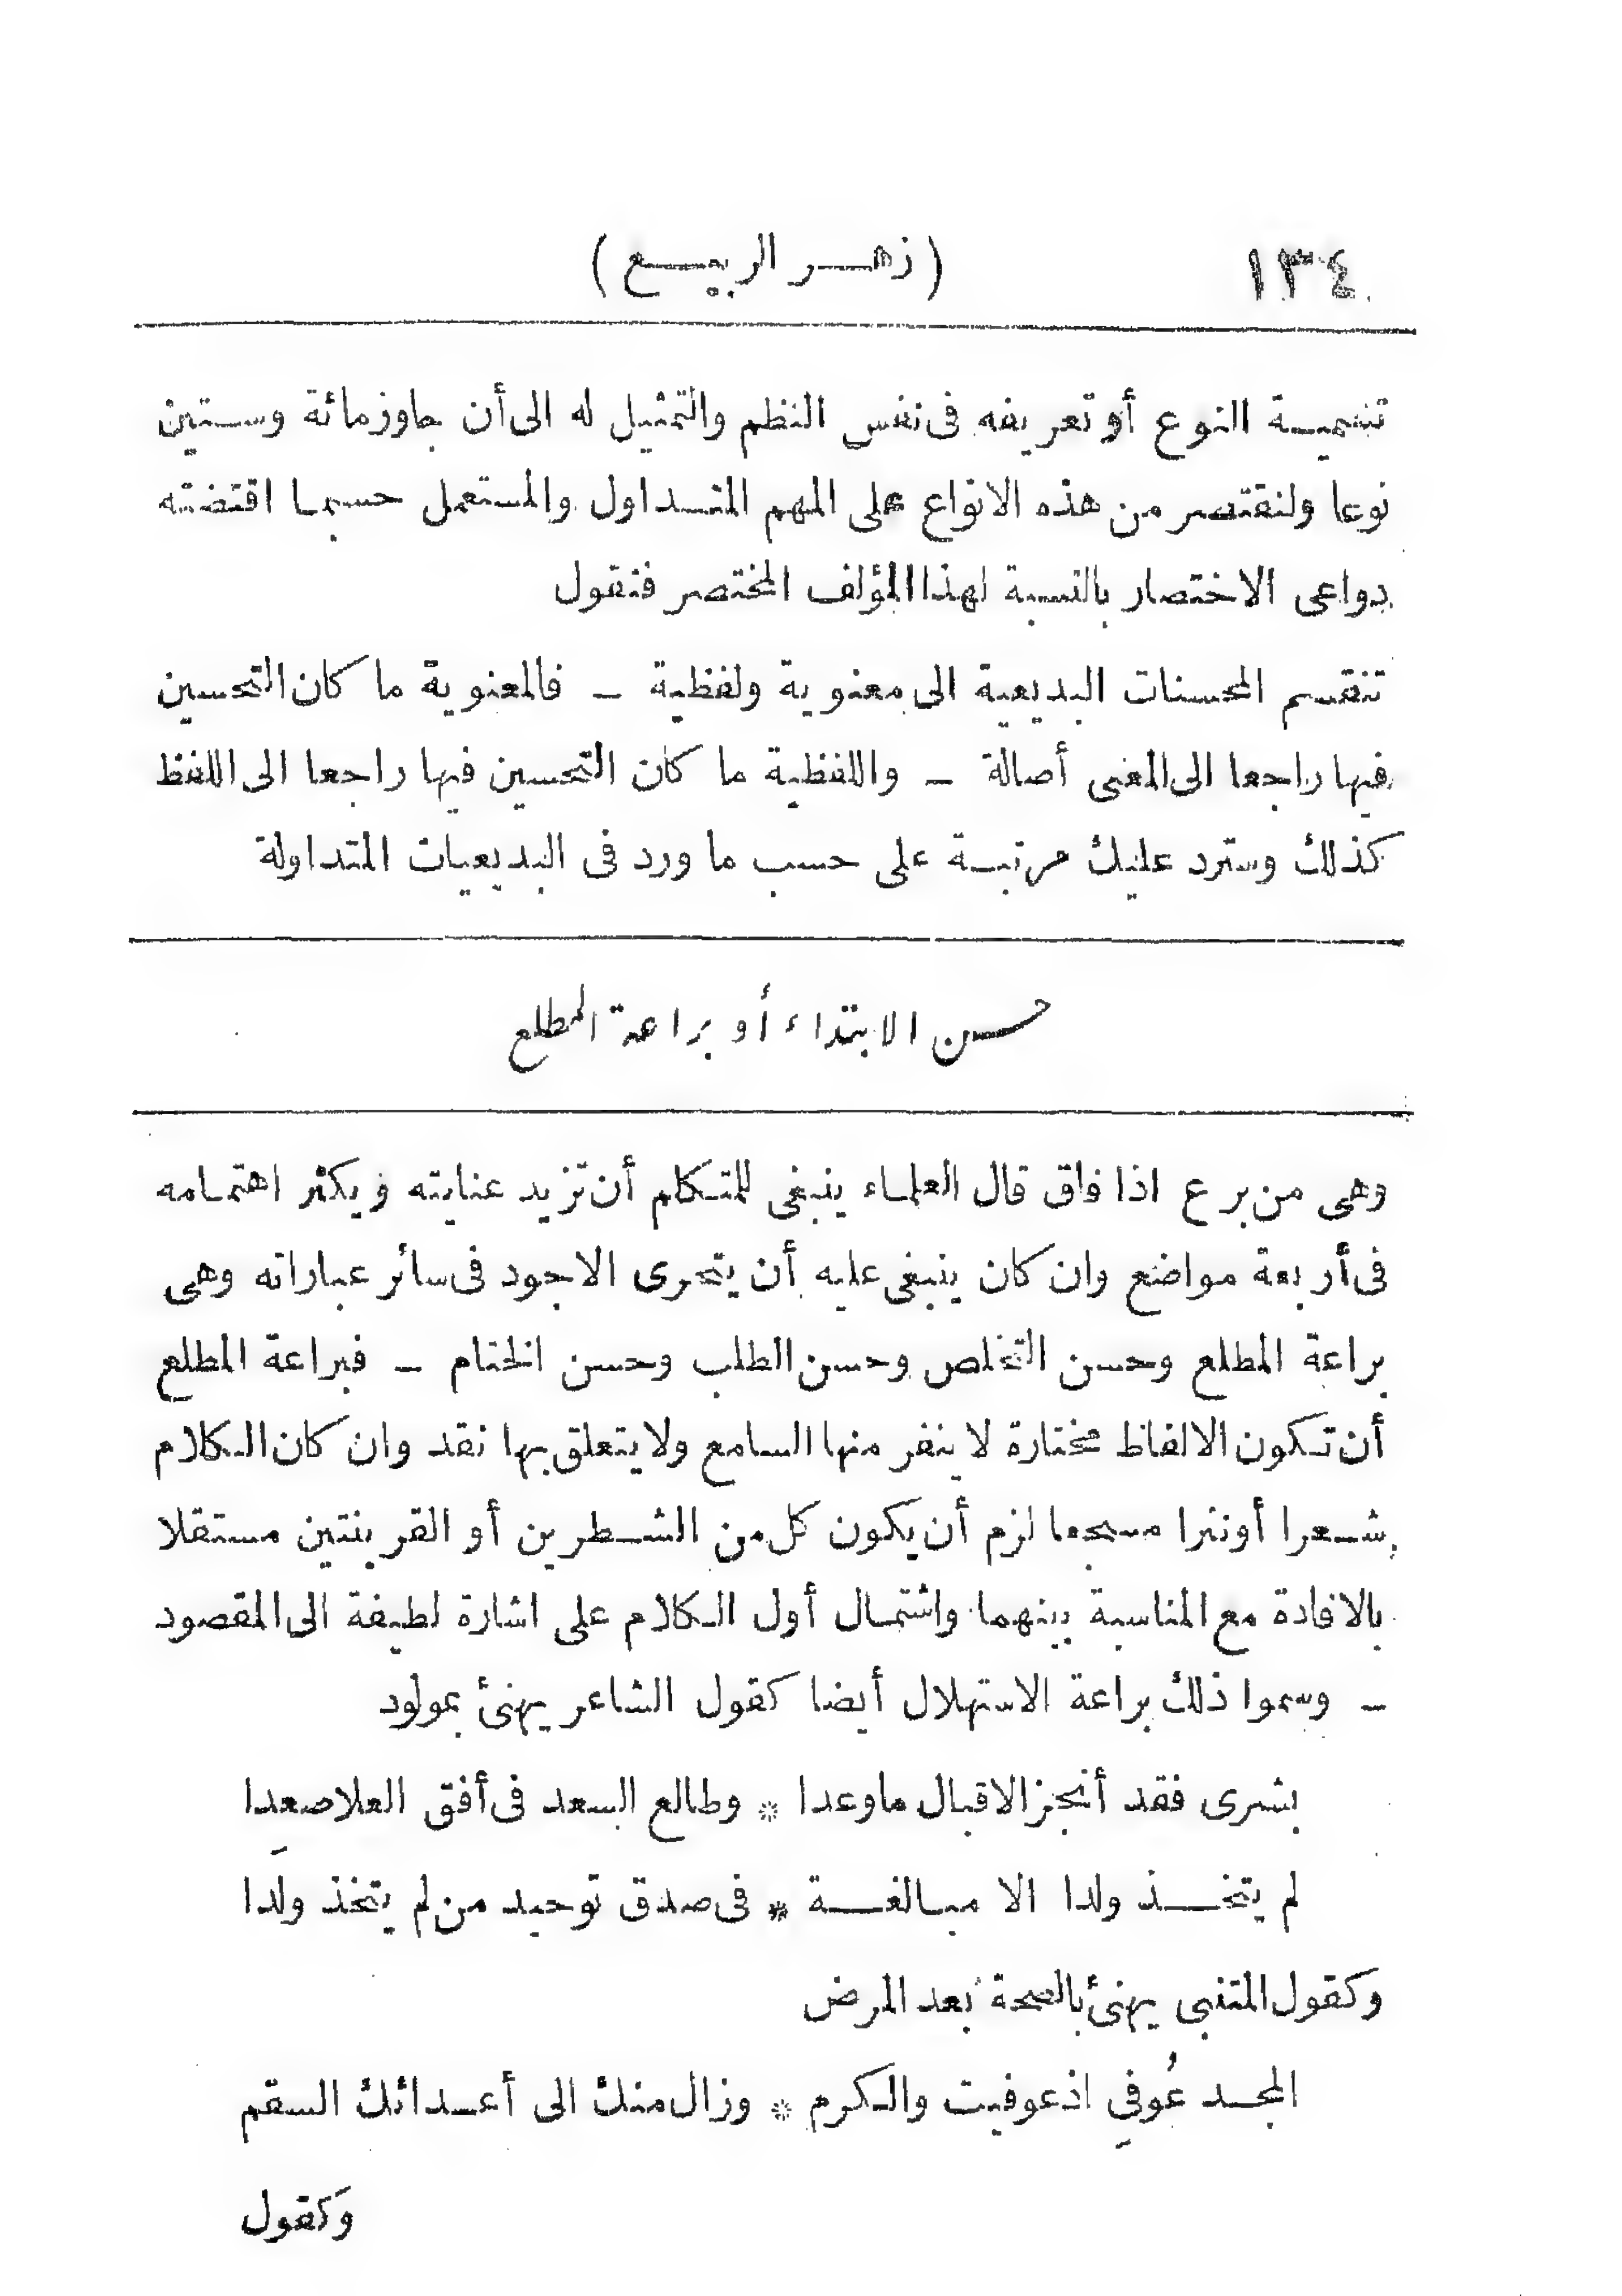 ١٣٤ (زهر الربيع)
تسمية النوع أو تعريفه فى نفس النظم والتمثيل له الى أن جاوز مائة وستين
نوعا ولنقتصر من هذه الانواع على المهم المتداول والمستعمل حسبما اقتضته
دواعى الاختصار بالنسبة لهذا المؤلف المختصر فنقول
تنقسم المحسنات البديعية الى معنوية ولفظية – فالمعنوية ما كان التحسين
فيها راجعا الى المعنى أصالة – واللفظية ما كان التحسين فيها راجعا الى اللفظ
كذلك وسترد عليك مرتبة على حسب ما ورد فى البديعيات المتداولة
حسن الابتداء أو براعة المطلع
وهى من برع اذا فاق قال العلماء ينبغى للمتكلم أن تزيد عنايته ويكثر اهتمامه
فى أربعة مواضع وان كان ينبغى عليه أن يتحرى الاجود فى سائر عباراته وهى
براعة المطلع وحسن التخلص وحسن الطلب وحسن الختام – فبراعة المطلع
أن تكون الالفاظ مختارة لا ينفر منها السامع ولا يتعلق بها نقد وان كان الكلام
شعرا أو نثرا مسجعا لزم أن يكون كل من الشطرين أو القرينتين مستقلا
بالافادة مع المناسبة بينهما واشتمال أول الكلام على اشارة لطيفة الى المقصود
– وسموا ذلك براعة الاستهلال أيضا كقول الشاعر يهنئ بمولود
بشرى فقد أنجز الاقبال ما وعدا * وطالع السعد فى أفق العلا صعِدا
لم يتخذ ولدا الا مبالغة * فى صدق توحيد من لم يتخذ ولدا
وكقول المتنبى يهنئ بالصحة بعد المرض
المجد عُوفِى اذ عوفيت والكرم * وزال منك الى أعدائك السقم
وكقول